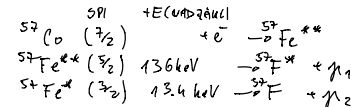 SPI +E(VADZAUCI
⁵⁷Co (7/2) + e⁻ → ⁵⁷Fe**
⁵⁷Fe** (5/2) 136 keV → ⁵⁷F * + γ₁
⁵⁷Fe* (3/2) 13.4 keV → ⁵⁷F + γ₂